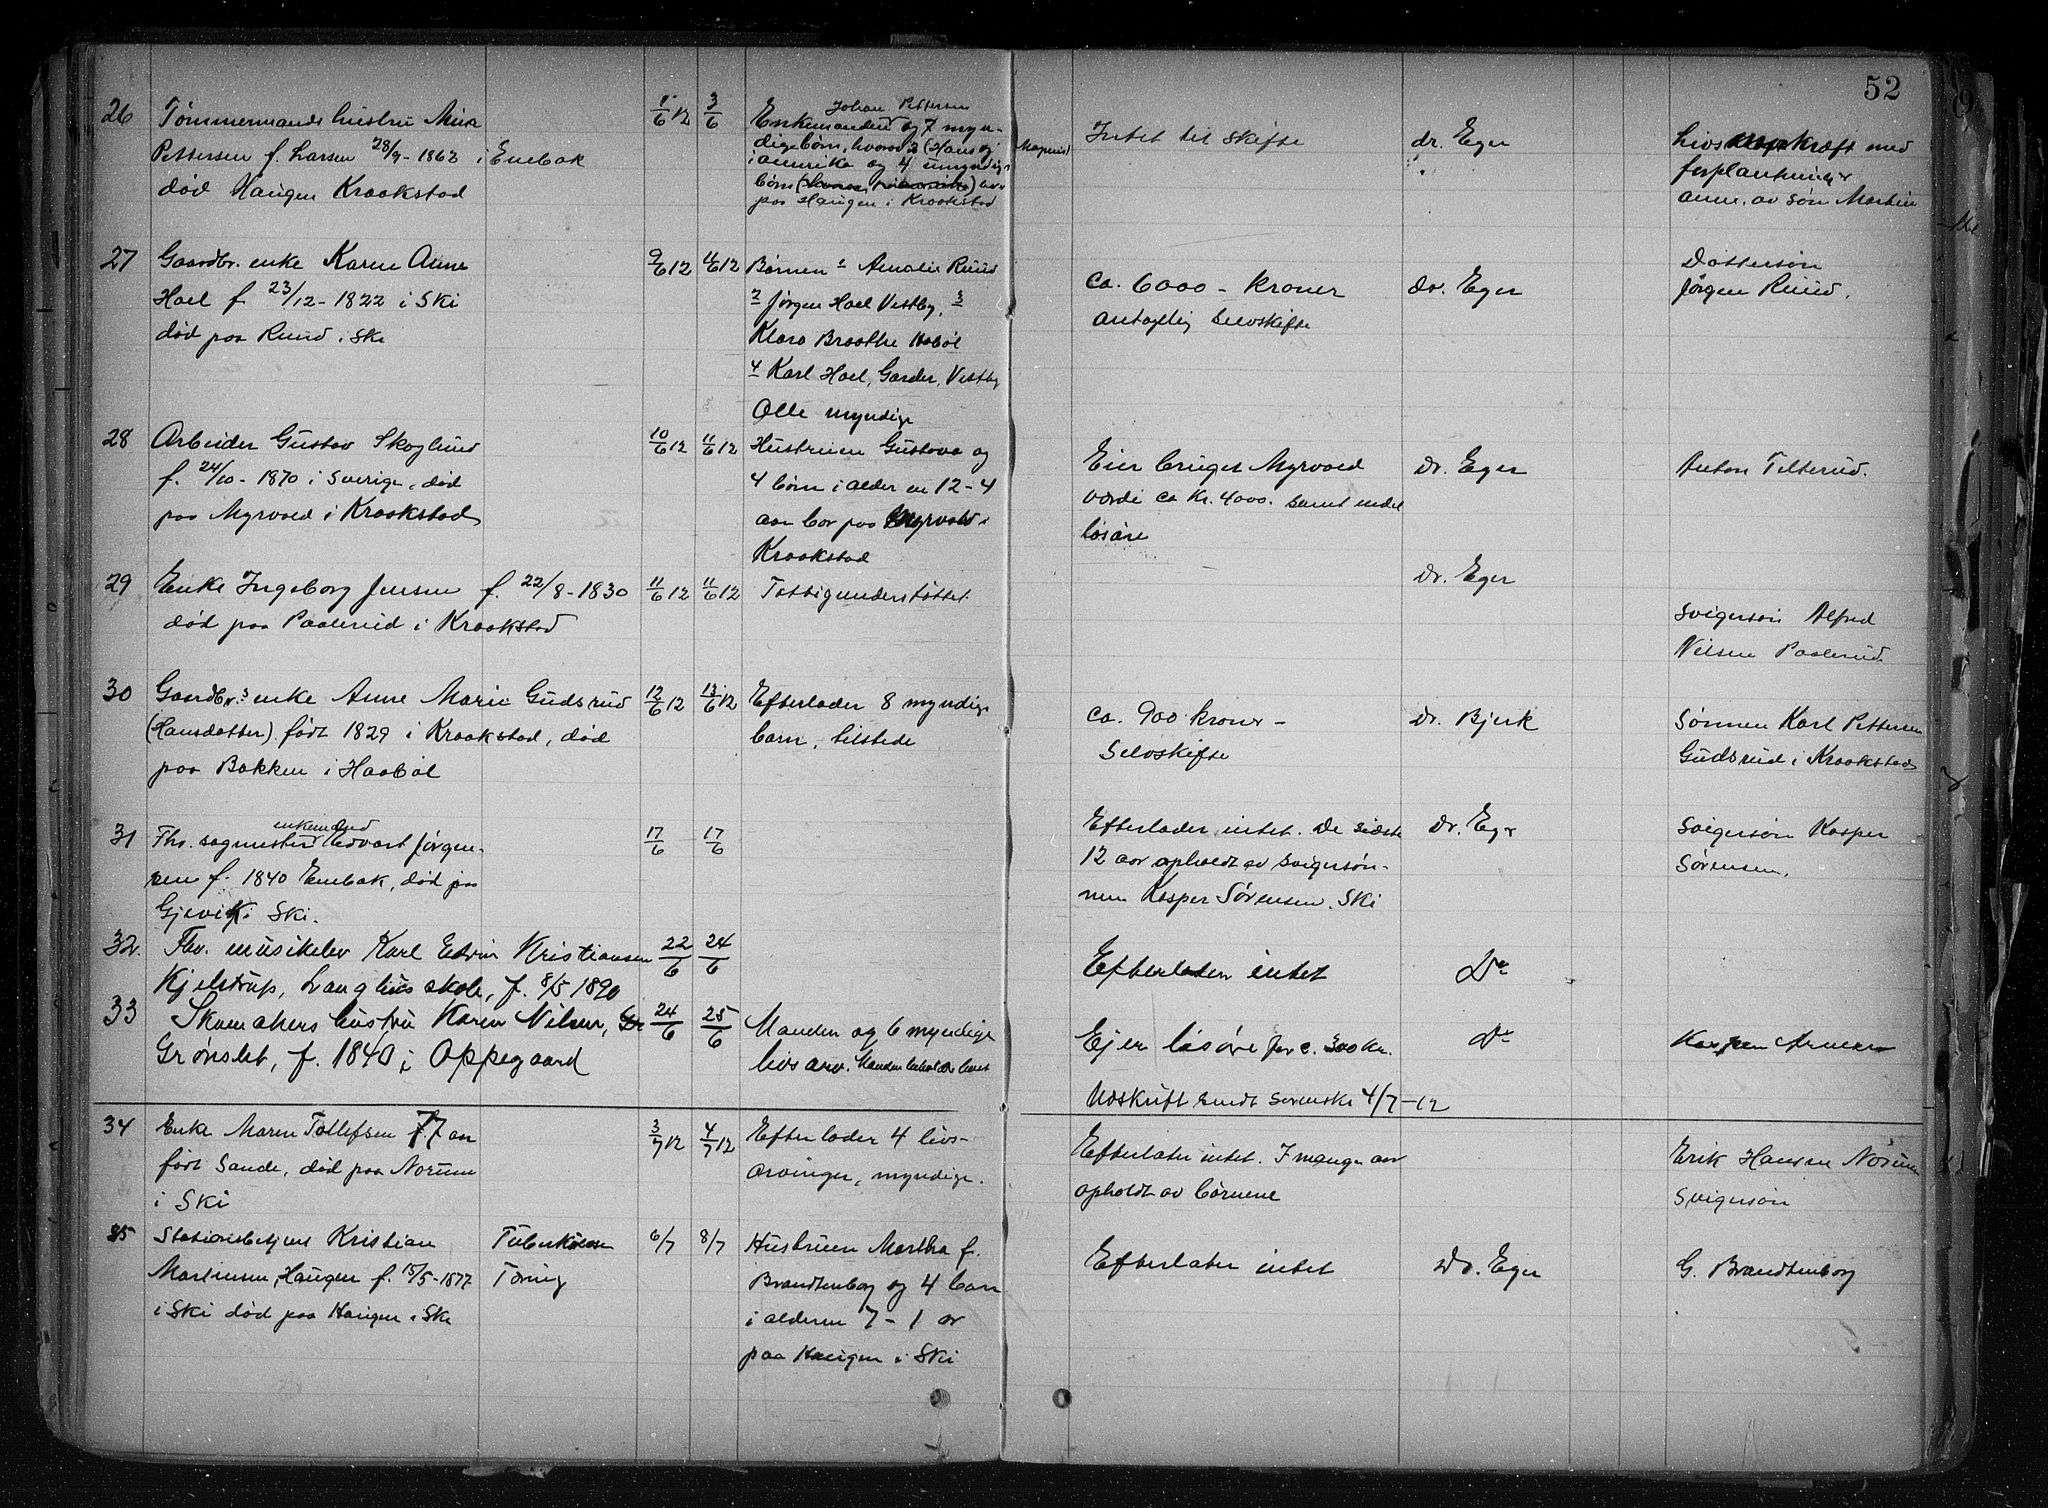 52
26
Tømmermands hustru Mina
Pettersen f. Larsen 28/9 - 1862 i Enebak
død Haugen Kraakstad
1/6 12
3/6
Johan Pettersen
Enkemanden og 7 myn-
dige børn, hvorav 2 (Hans og Magnus)
i Amerika og 4 umyndige
børn
paa Haugen i Kraakstad
Intet til skifte
dr. Eger
Livs kræft med
forplantninger
anm. av søn Martin
27
Gaardbr. enke Karen Anne
Hoel f. 23/12 - 1822 i Ski
død paa Ruud i Ski
9/6 12
11/6 12
Børnen 1 Amalie Ruud
2 Jørgen Hoel Vestby, 3
Klara Braathe Hobøl
4 Karl Hoel, Garder, Vestby
Alle myndige
Ca. 6000 - kroner
antagelig selvskifte
dr. Eger
Dattersøn
Jørgen Ruud.
28
Arbeider Gustav Skoglund
f. 24/10 - 1870 i Sverige, død
paa Myrvold i Kraakstad
10/6 12
11/6 12
Hustruen Gustava og
4 børn i alder en 12 - 4
aar bor paa Myrvold i
Kraakstad
Eier bruget Myrvold
værdi ca kr. 4000. samt endel
løsøre
dr. Eger
Anton Telterud.
29
Enke Ingeborg Jensen f. 22/8 - 1830
død paa Paalerud i Kraakstad
11/6 12
11/6 12
Fattigunderstøttet.
dr. Eger
Svigersøn Alfred
Nilsen Paalerud
30
Gaardbr.s enke Anne Marie Gudsrud
(Hansdatter) født 1829 i Kraakstad, død
paa Bakken i Haabøl
12/6 12
13/6 12
Efterlader 8 myndige
barn, tilstede
Ca. 900 kroner -
Selvskifte
dr. Bjerk
Sønnen Karl Pettersen
Gudsrud i Kraakstad
31
enkemand
Fhv. sagmester Edvart Jørgen-
sen f. 1840 Enebak, død paa
Gjevik i Ski.
17/6
17/6
Efterlader intet. De sidste
12 aar opholdt av svigersøn-
nen Kasper Sørensen. Ski
dr. Eger
Svigersøn Kasper
Sørensen.
32.
Fhv. musikelev Karl Edvin Kristiansen
Kjelstrup, Langhus skole, f. 8/5 1890
22/6
24/6
Efterlader intet
Do
33
Skomakers hustru Karen Nilsen,
Grønslet, f. 1840 i Oppegaard
24/6
25/6
Manden og 6 myndige
livsarv. Manden beholder boet
Ejer løsøre for c. 300 kr.
Utskrift sendt sorenskr. 4/7 - 12
Do
34
Enke Maren Tollefsen 77 aar
født Sande, død paa Norum
i Ski
3/7 12
4/7 12
Efterlader 4 livs-
arvinger, myndige.
Efterlater intet. I mange aar
opholdt av børnene
Erik Hansen Norum
Svigersøn
35
Stationsbetjent Kristian
Martinsen, Haugen f. 15/5 - 1877
i Ski død paa Haugen i Ski
Tuberkuløse
Tæring
6/7
8/7
Hustruen Martha f.
Brandtenborg og 4 barn
i alderen 7 - 1 ar
paa Haugen i Ski
Efterlater intet
Dr. Eger
G. Brandtenborg